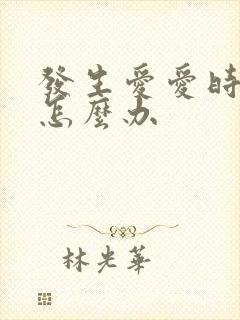 發生愛愛時
怎麼办
林光華